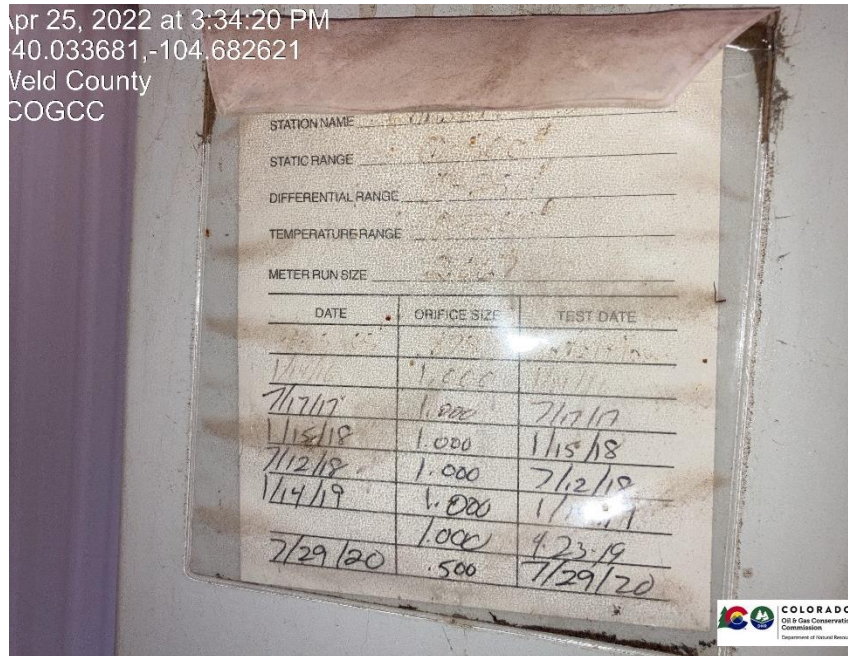 Apr 25, 2022 at 3:34:20 PM
40.033681,-104.682621
Weld County
COGCC
STATION NAME
STATIC RANGE
DIFFERENTIAL RANGE
TEMPERATURE RANGE
METER RUN SIZE
DATE ORIFICE SIZE TEST DATE
1.000
7/17/17 1.000 7/17/17
1/15/18 1.000 1/15/18
7/12/18 1.000 7/12/18
1/14/19 1.000
1.000 4-23-19
7/29/20 .500 7/29/20
COLORADO
Oil & Gas Conservation
Commission
Department of Natural